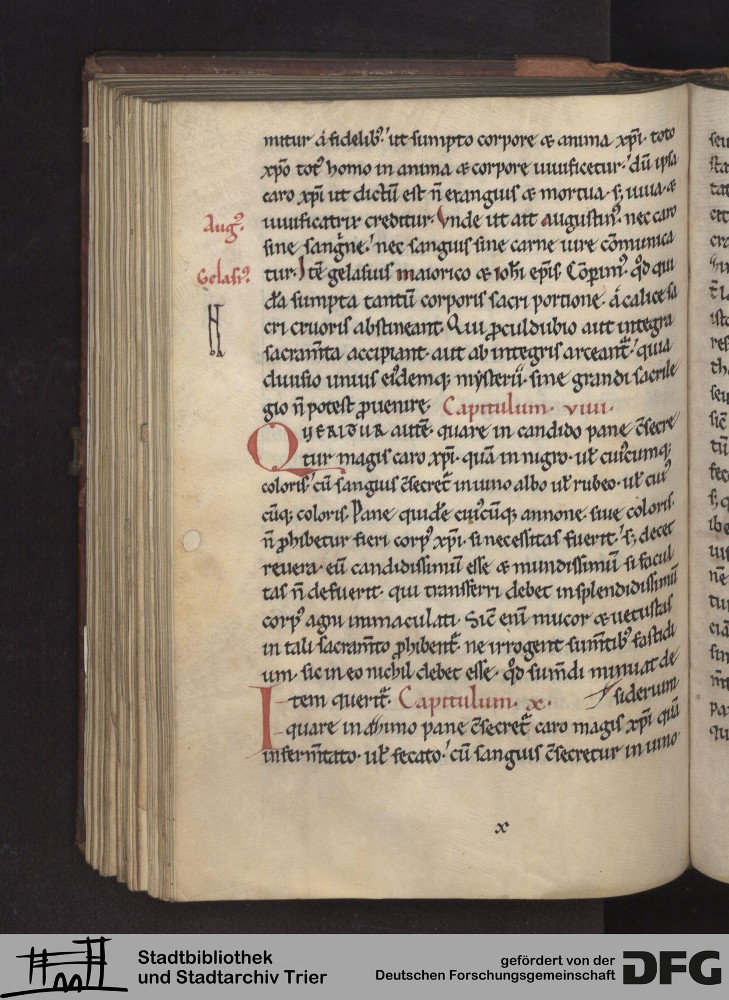 mitur a fidelibꝰ. ut sumpto corpore & anima xp̄i. toto
xp̄o totꝰ homo in anima & corpore uiuificetur. dū ipsa
caro xp̄i ut dictū est n̄ exanguis & mortua. s; uiua &
Augꝰ. uiuificatrix creditur. Vnde ut ait augustinꝰ. nec caro
sine sanguīe. nec sanguis sine carne iure cōmunica
Gelasiꝰ. tur. Itē gelasius maiorico & ioħi ep̄is. Cōperimꝰ. qd̄ qui
dā sumpta tantū corporis sacri portione. a calice sa
cri cruoris abstineant. Qui ꝓculdubio aut integra
sacram̄ta accipiant. aut ab integris arceant̄. quia
diuisio unius eiꝰdemq; mysterii. sine grandi sacrile
gio n̄ potest ꝓuenire. Capitulum. viiii.
QVERITUR autē. quare in candido pane c̄secre
tur magis caro xp̄i. quā in nigro. ul̄ cuiꝰcumq;
coloris. cū sanguis c̄secret̄ in uino albo ul̄ rubeo. ul̄ cuiꝰ
cūq; coloris. Pane quidē cuiꝰcūq; annone. siue coloris.
n̄ ꝓhibetur fieri corpꝰ xp̄i. si necessitas fuerit. s; decet
reuera. eū candidissimū esse & mundissimū si facul
tas n̄ defuerit. qui transferri debet in splendidissimū
corpꝰ agni immaculati. Sic̄ enī mucor & uetustas
in tali sacram̄to ꝓhibent̄. ne irrogent sum̄tibꝰ fastidi
um. sic in eo nichil debet esse. qd̄ sum̄di minuat de
Item querit̄. Capitulum. x. siderium
quare in azimo pane c̄secret̄ caro magis xp̄i quā
in ferm̄tato. ul̄ fecato. cū sanguis c̄secretur in uino
x
Stadtbibliothek
und Stadtarchiv Trier
gefördert von der
Deutschen Forschungsgemeinschaft
DFG